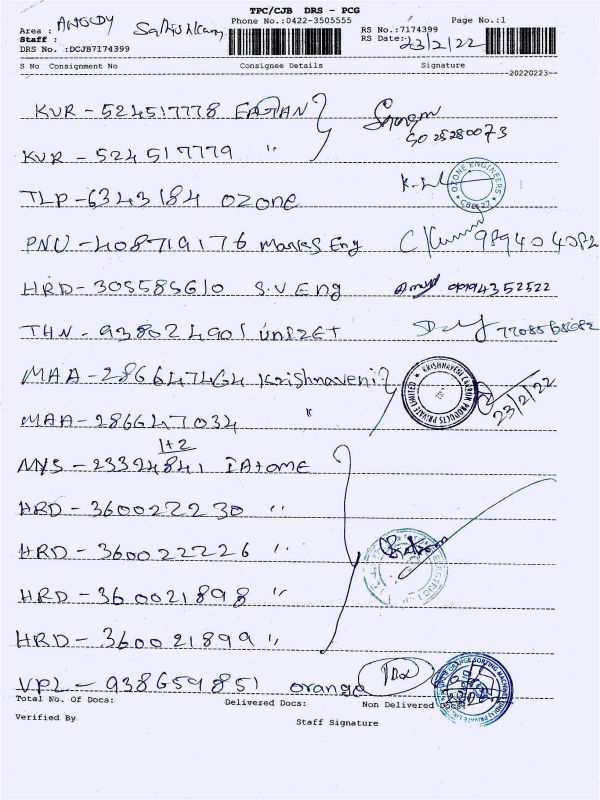 TPC/CJB DRS - PCG
Area : ANGLDY Phone No.:0422-3505555 Page No.:1
Staff : RS No.:7174399
DRS No. :DCJB7174399 RS Date: 23/2/22
S No Consignment No Consignee Details Signature
--20220223--
KVR - 524517778
KVR - 524517779 "
SO 25280073
TLP - 6343184 OZONE
OZONE ENGINEERS
PNU - 408719176 Manres Eng
HRD - 305585610 S.V Eng 9994352522
THN - 938024901
MAA - 286647464 Krishnaveni
KRISHNAVENI CARBON PRODUCTS PRIVATE LIMITED
23/2/22
MAA - 286647034 "
1+2
NYS - 23324841
HRD - 360022230 "
HRD - 360022226 "
HRD - 360021898 "
HRD - 360021899 "
VPL - 938659851 orange
Total No. Of Docs: Delivered Docs: Non Delivered Docs:
Verified By Staff Signature